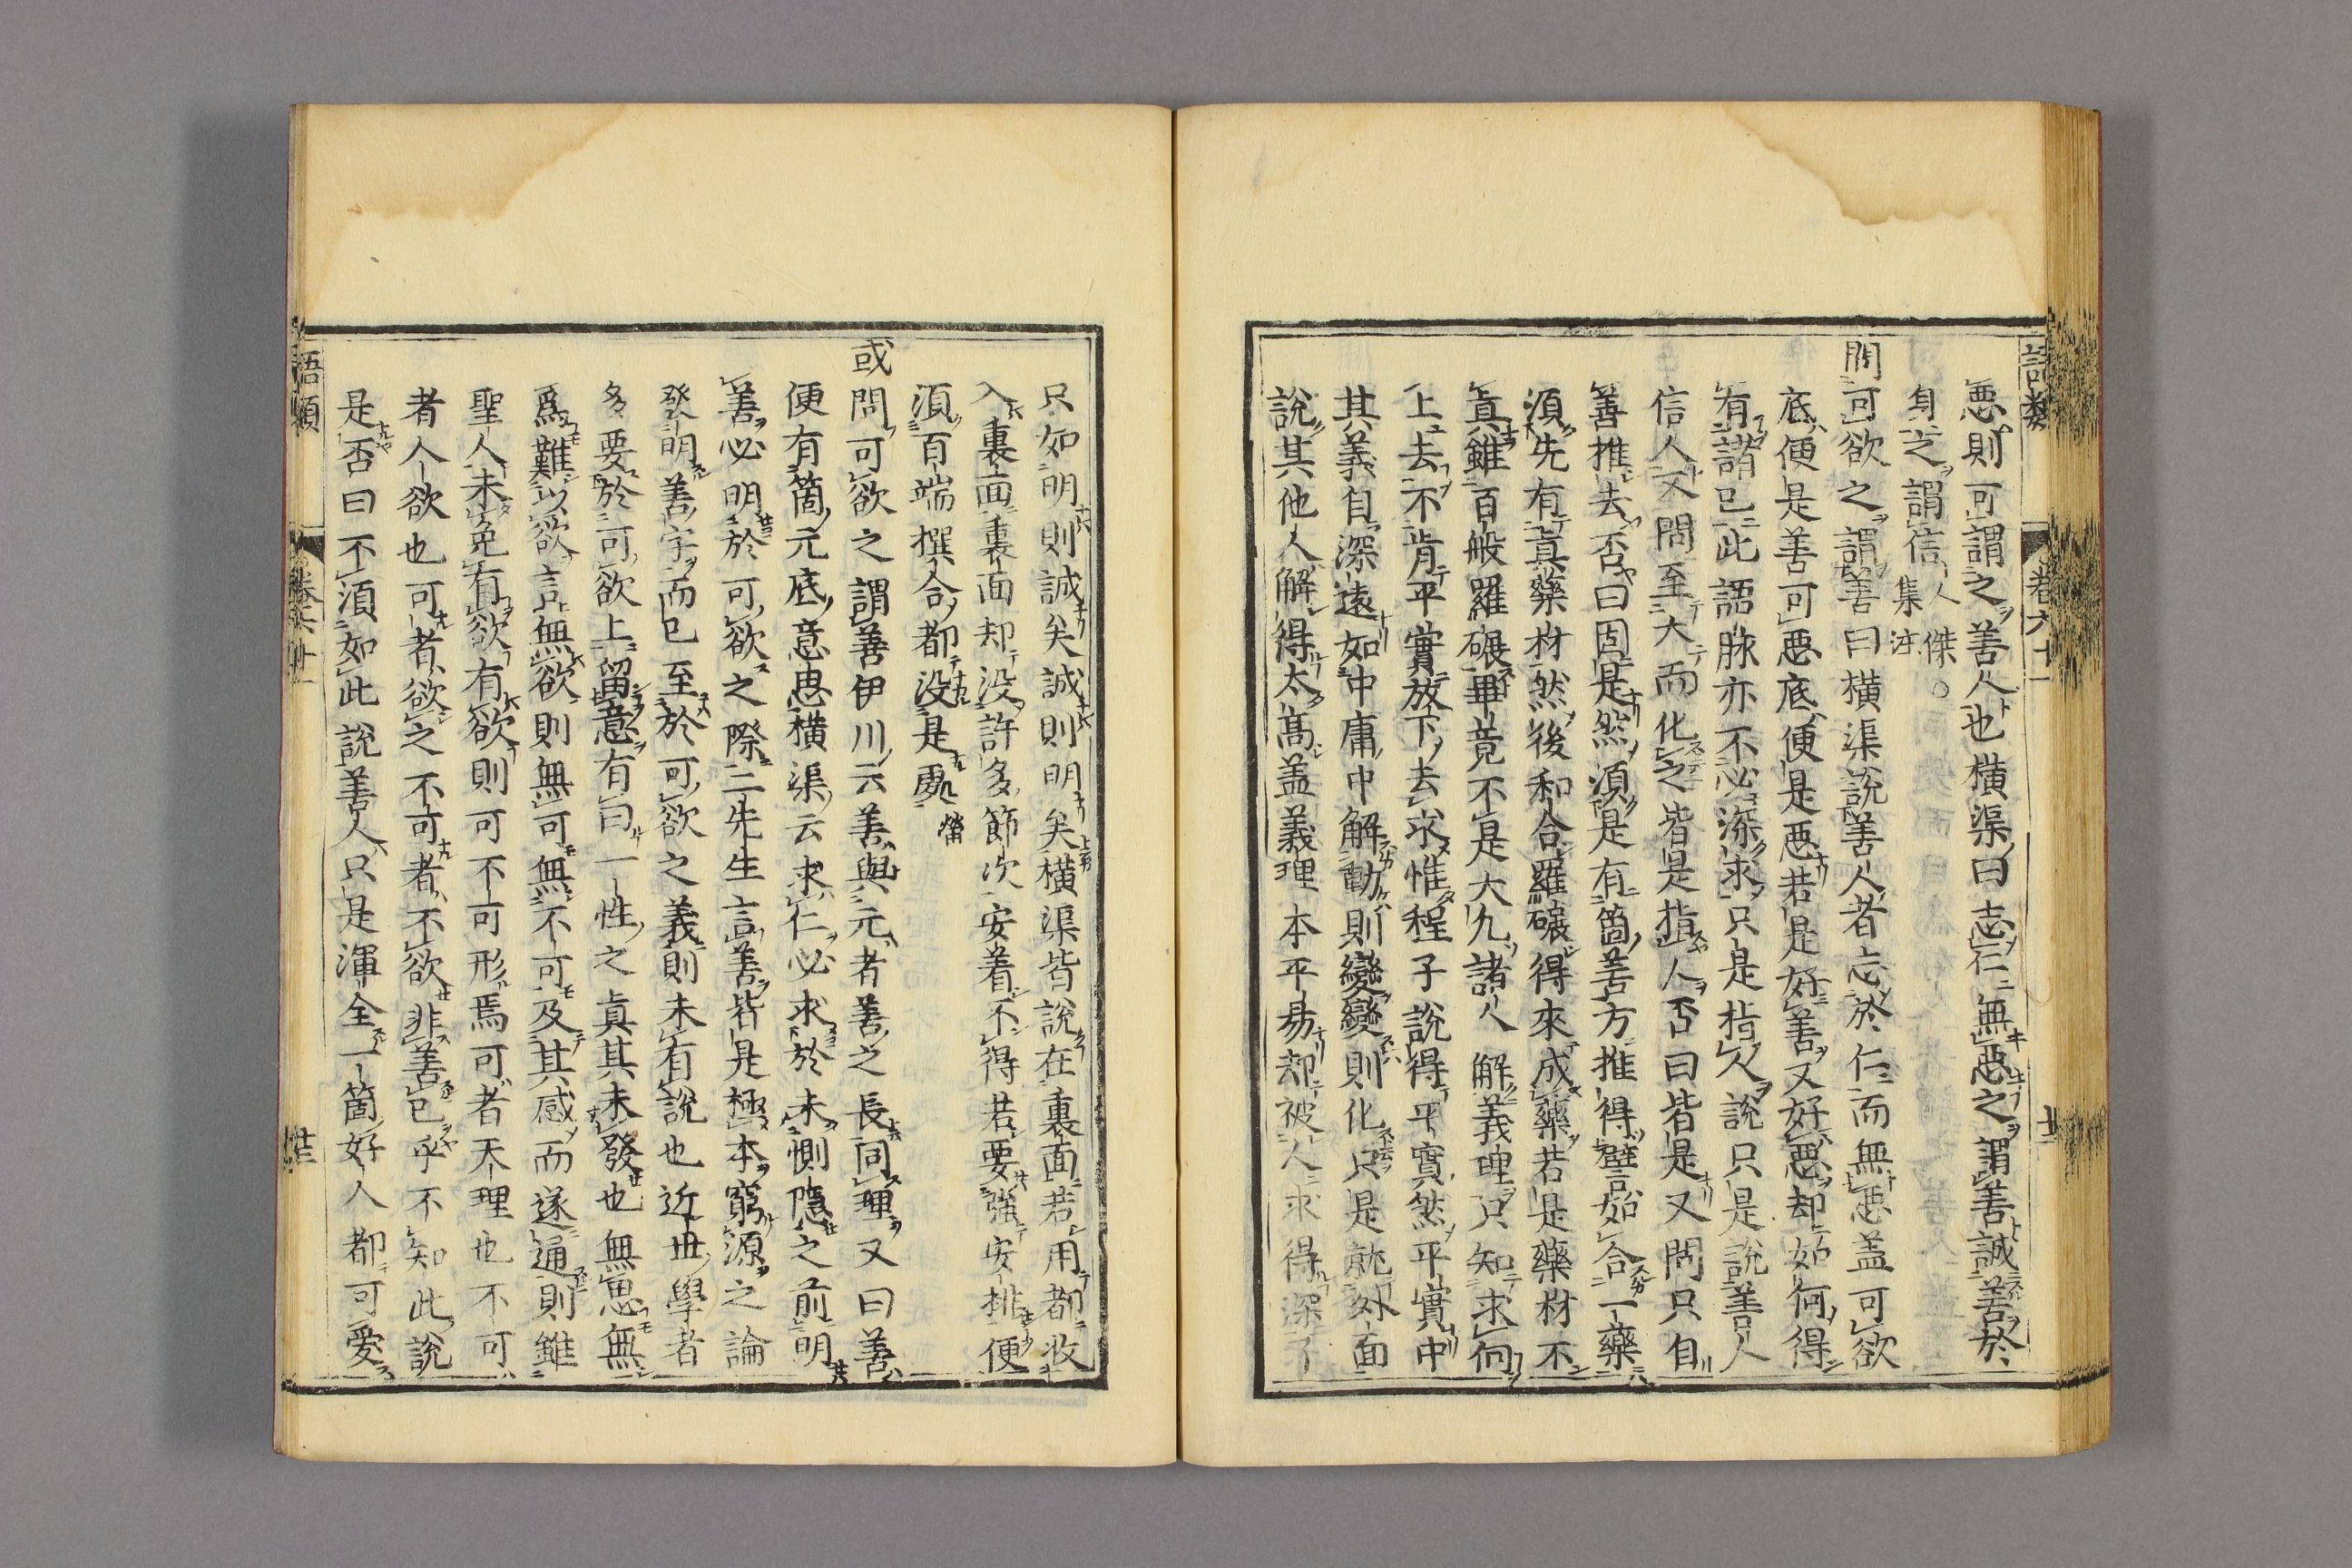 語類 卷六十一
惡則可謂之善人也橫渠曰志仁無惡之謂善誠善於
身之謂信人傑○
集注
問可欲之謂善曰橫渠說善人者志於仁而無惡蓋可欲
底便是善可惡底便是惡若是好善又好惡却如何得
有諸己此語脉亦不必深求只是指人說只是說善人
信人又問至大而化之皆是指人否曰皆是又問只自
善推去否曰固是然須是有箇善方推得譬如合一藥
須先有真藥材然後和合羅碾得來成藥若是藥材不
真雖百般羅碾畢竟不是大凢諸人解義理只知求向
上去不肯平實放下去求惟程子說得平實然平實中
其義自深遠如中庸中解動則變變則化只是就外面
說其他人解得太高蓋義理本平易却被人求得深了
只如明則誠矣誠則明矣橫渠皆說在裏面若用都收
入裏面裏面却沒許多節次安着不得若要強安排便
須百端撰合都沒是處㽦
或問可欲之謂善伊川云善與元者善之長同理又曰善
便有箇元底意思橫渠云求仁必求於未惻隱之前明
善必明於可欲之際二先生言善皆是極本窮源之論
發明善字而已至於可欲之義則未有說也近世學者
多要於可欲上留意有曰一性之真其未發也無思無
爲難以欲言無欲則無可無不可及其感而遂通則雖
聖人未免有欲有欲則可不可形焉可者天理也不可
者人欲也可者欲之不可者不欲非善已乎不知此說
是否曰不須如此說善人只是渾全一箇好人都可愛
語類 卷六十一 廿三